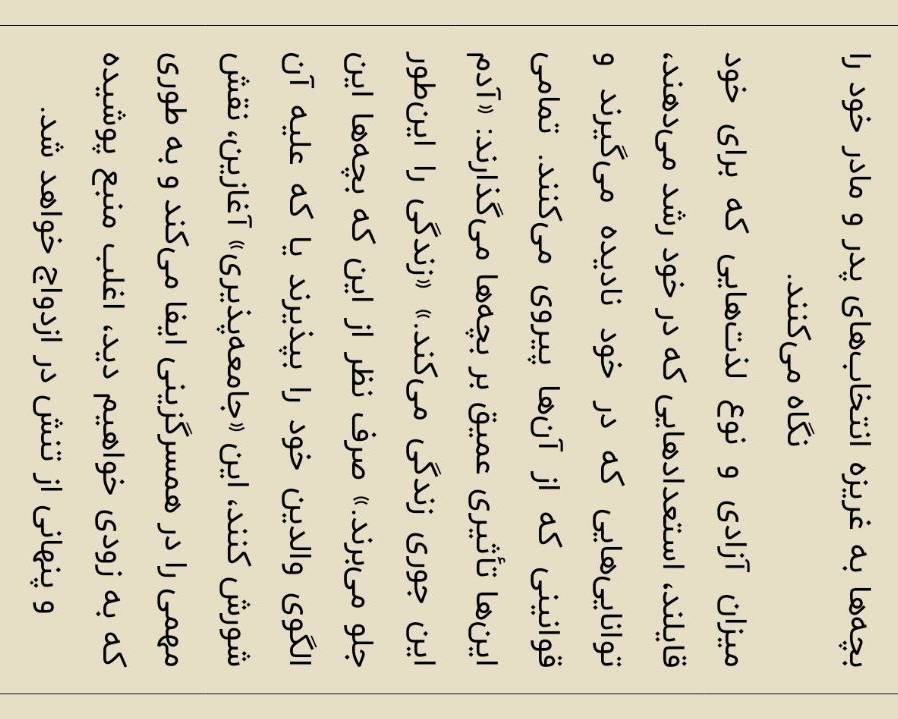 بچه‌ها به غریزه انتخاب‌های پدر و مادر خود را
نگاه می‌کنند.
میزان آزادی و نوع لذت‌هایی که برای خود
قایلند، استعدادهایی که در خود رشد می‌دهند،
توانایی‌هایی که در خود نادیده می‌گیرند و
قوانینی که از آن‌ها پیروی می‌کنند. تمامی
این‌ها تأثیری عمیق بر بچه‌ها می‌گذارند: «آدم
این جوری زندگی می‌کند.» «زندگی را این‌طور
جلو می‌برند.» صرف نظر از این که بچه‌ها این
الگوی والدین خود را بپذیرند یا که علیه آن
شورش کنند، این «جامعه‌پذیری» آغازین، نقش
مهمی را در همسرگزینی ایفا می‌کند و به طوری
که به زودی خواهیم دید، اغلب منبع پوشیده
و پنهانی از تنش در ازدواج خواهد شد.